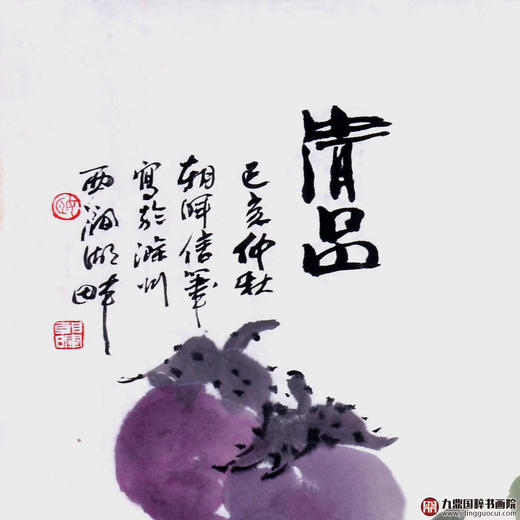 清品
己亥仲秋
朝晖信笔
寫於滁州
西涧湖畔
九鼎国粹书画院
www.jdingguocui.com